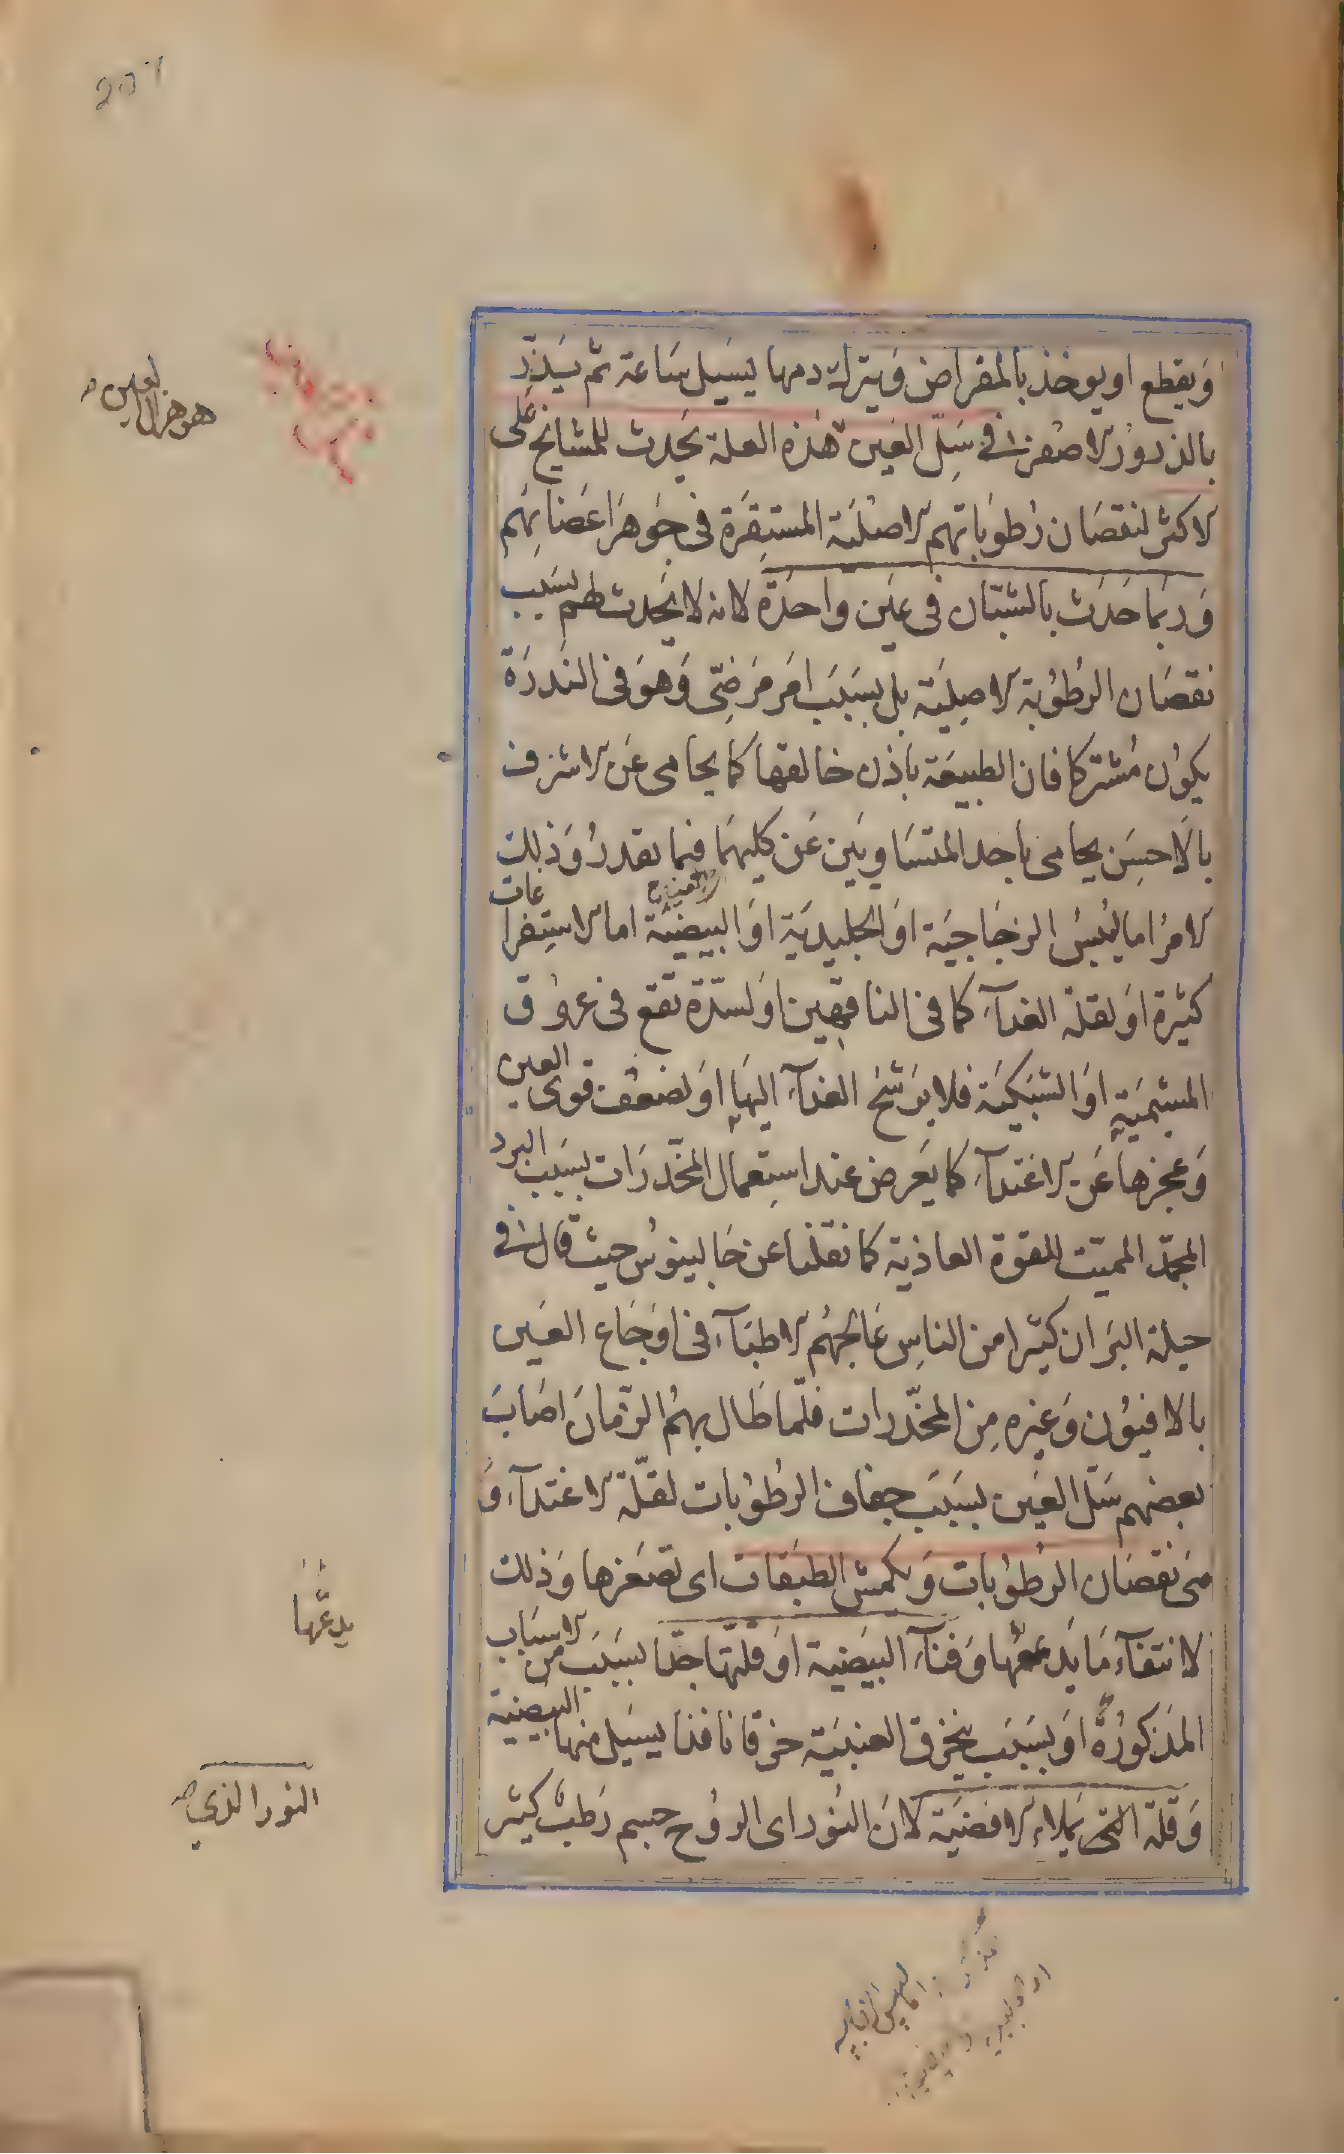 وَيقطع او يوخذ بالمقراض وَيترك دمها ليسَيل سَاعة ثم يَذِرّ
بالذرور الاصفر في سِلّ العَين هٰذه العلة يحَدث للمشايخ عَلى
الاكثر لنقصَان رُطوبَاتهم الاصْليَة المستقِرَة فى جَوهَر اعضَائِهَم
وَربمَا حَدَث بالشبّان فى عَين واحدَة لانه لا يحَدث لهم بسَبب
نقصَان الرطوُبة الاصِليَة بل بسَبَب امَر مَرَضِى وَهوَ فى الندرَة
يكوُن مُشتركا فان الطبيعَة باذن خالقها كما يحامى عَن الاشرف
بالاَحسَن يحامى باحد المتسَاويَين عَن كليهَما فيما يقدرُ وَذلك
الامرُ اما ليُبسُ الزجَاجيَة اوَ الجليديَة اوَ البيضيَة اما لاستِفراغات
كثيرة اوَ لقلة الغذآءِ كما فى الناقهِين اوَ لسّدّة تقع فى عروُق
المشيميَة اوَ الشبَكيَة فلا يَرشح الغذآء اليهَا اوَ لضعْف قوى العين
وَعجزهَا عَن الاغتذآءِ كما يَعَرض عند استِعمال المخدّرَات بسَبَب البرد
المجمّد المميت للقوة الغاذية كما نقلنا عن جَالينوُس حيث قال في
حيلة البرَ ان كثيرا من الناسِ عَالجهُم الاطبَآء فى اوَجَاع العَين
بالافيوُن وَغيره مِن المخدّرات فلمّا طَال بهمُ الزّمانُ اصَابَ
بعضهم سَلّ العَين بسَبَب جفاف الرطوُبات لقلّة الاغتذآءِ وَ
مَتى نقصَان الرُطوُبات وَيكمش الطبَقات اى تصَغرها وَذلك
لانتفآء مَا يَدعمّها وَفنآء البيَضية اوَ قلّتها جدّا بسَبَب من الاسبَاب
المَذكورُة اوَ بسَبَب ينخرق العنبيَة خرقا نافذا يسَيل منها البيضية
وَقلة التى يملاء الافضَيَة لانَ النُور اى الروُح جسم رَطب كثير
هو هزال العين
يدعّمها
النور الذي